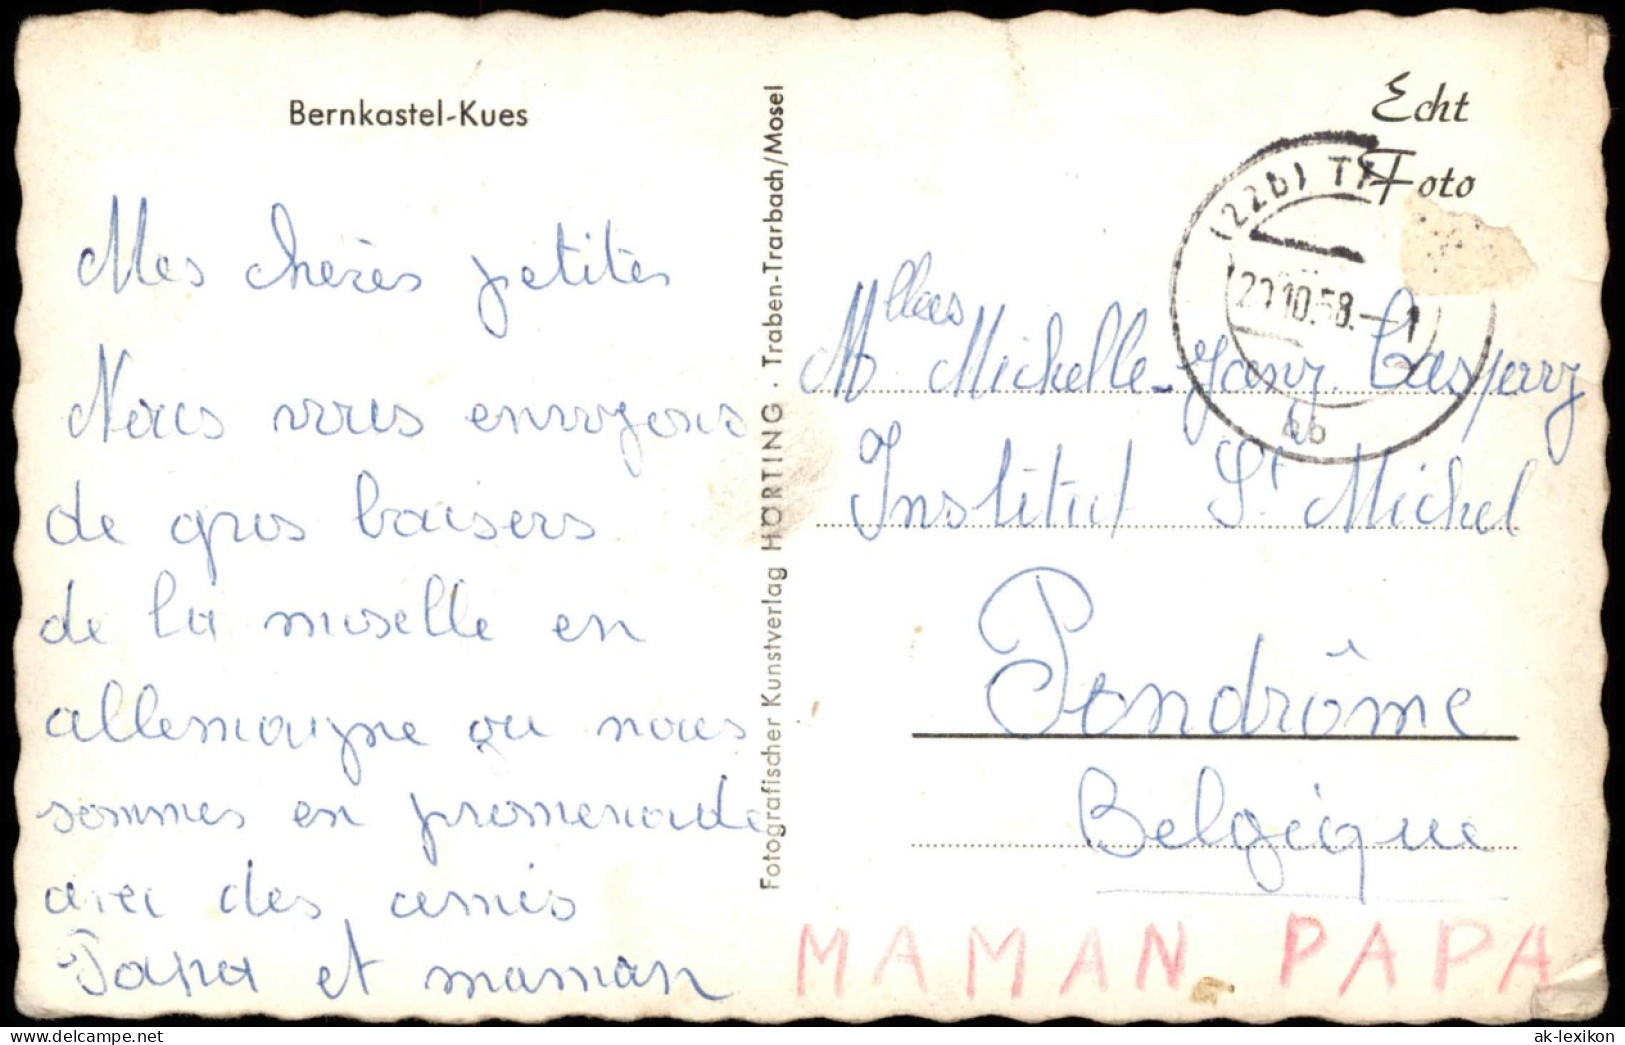 Bernkastel-Kues
Mes chères petites
Nous vous envoyons
de gros baisers
de la moselle en
allemagne ou nous
sommes en promenade
avec des amis
Papa et maman
Fotografischer Kunstverlag HORTING · Traben-Trarbach/Mosel
Echt
Foto
(22b) T
20.10.58.-1
bb
Mlles Michelle-Jany Caspery
Institut St Michel
Pondrôme
Belgique
MAMAN PAPA
ak-lexikon